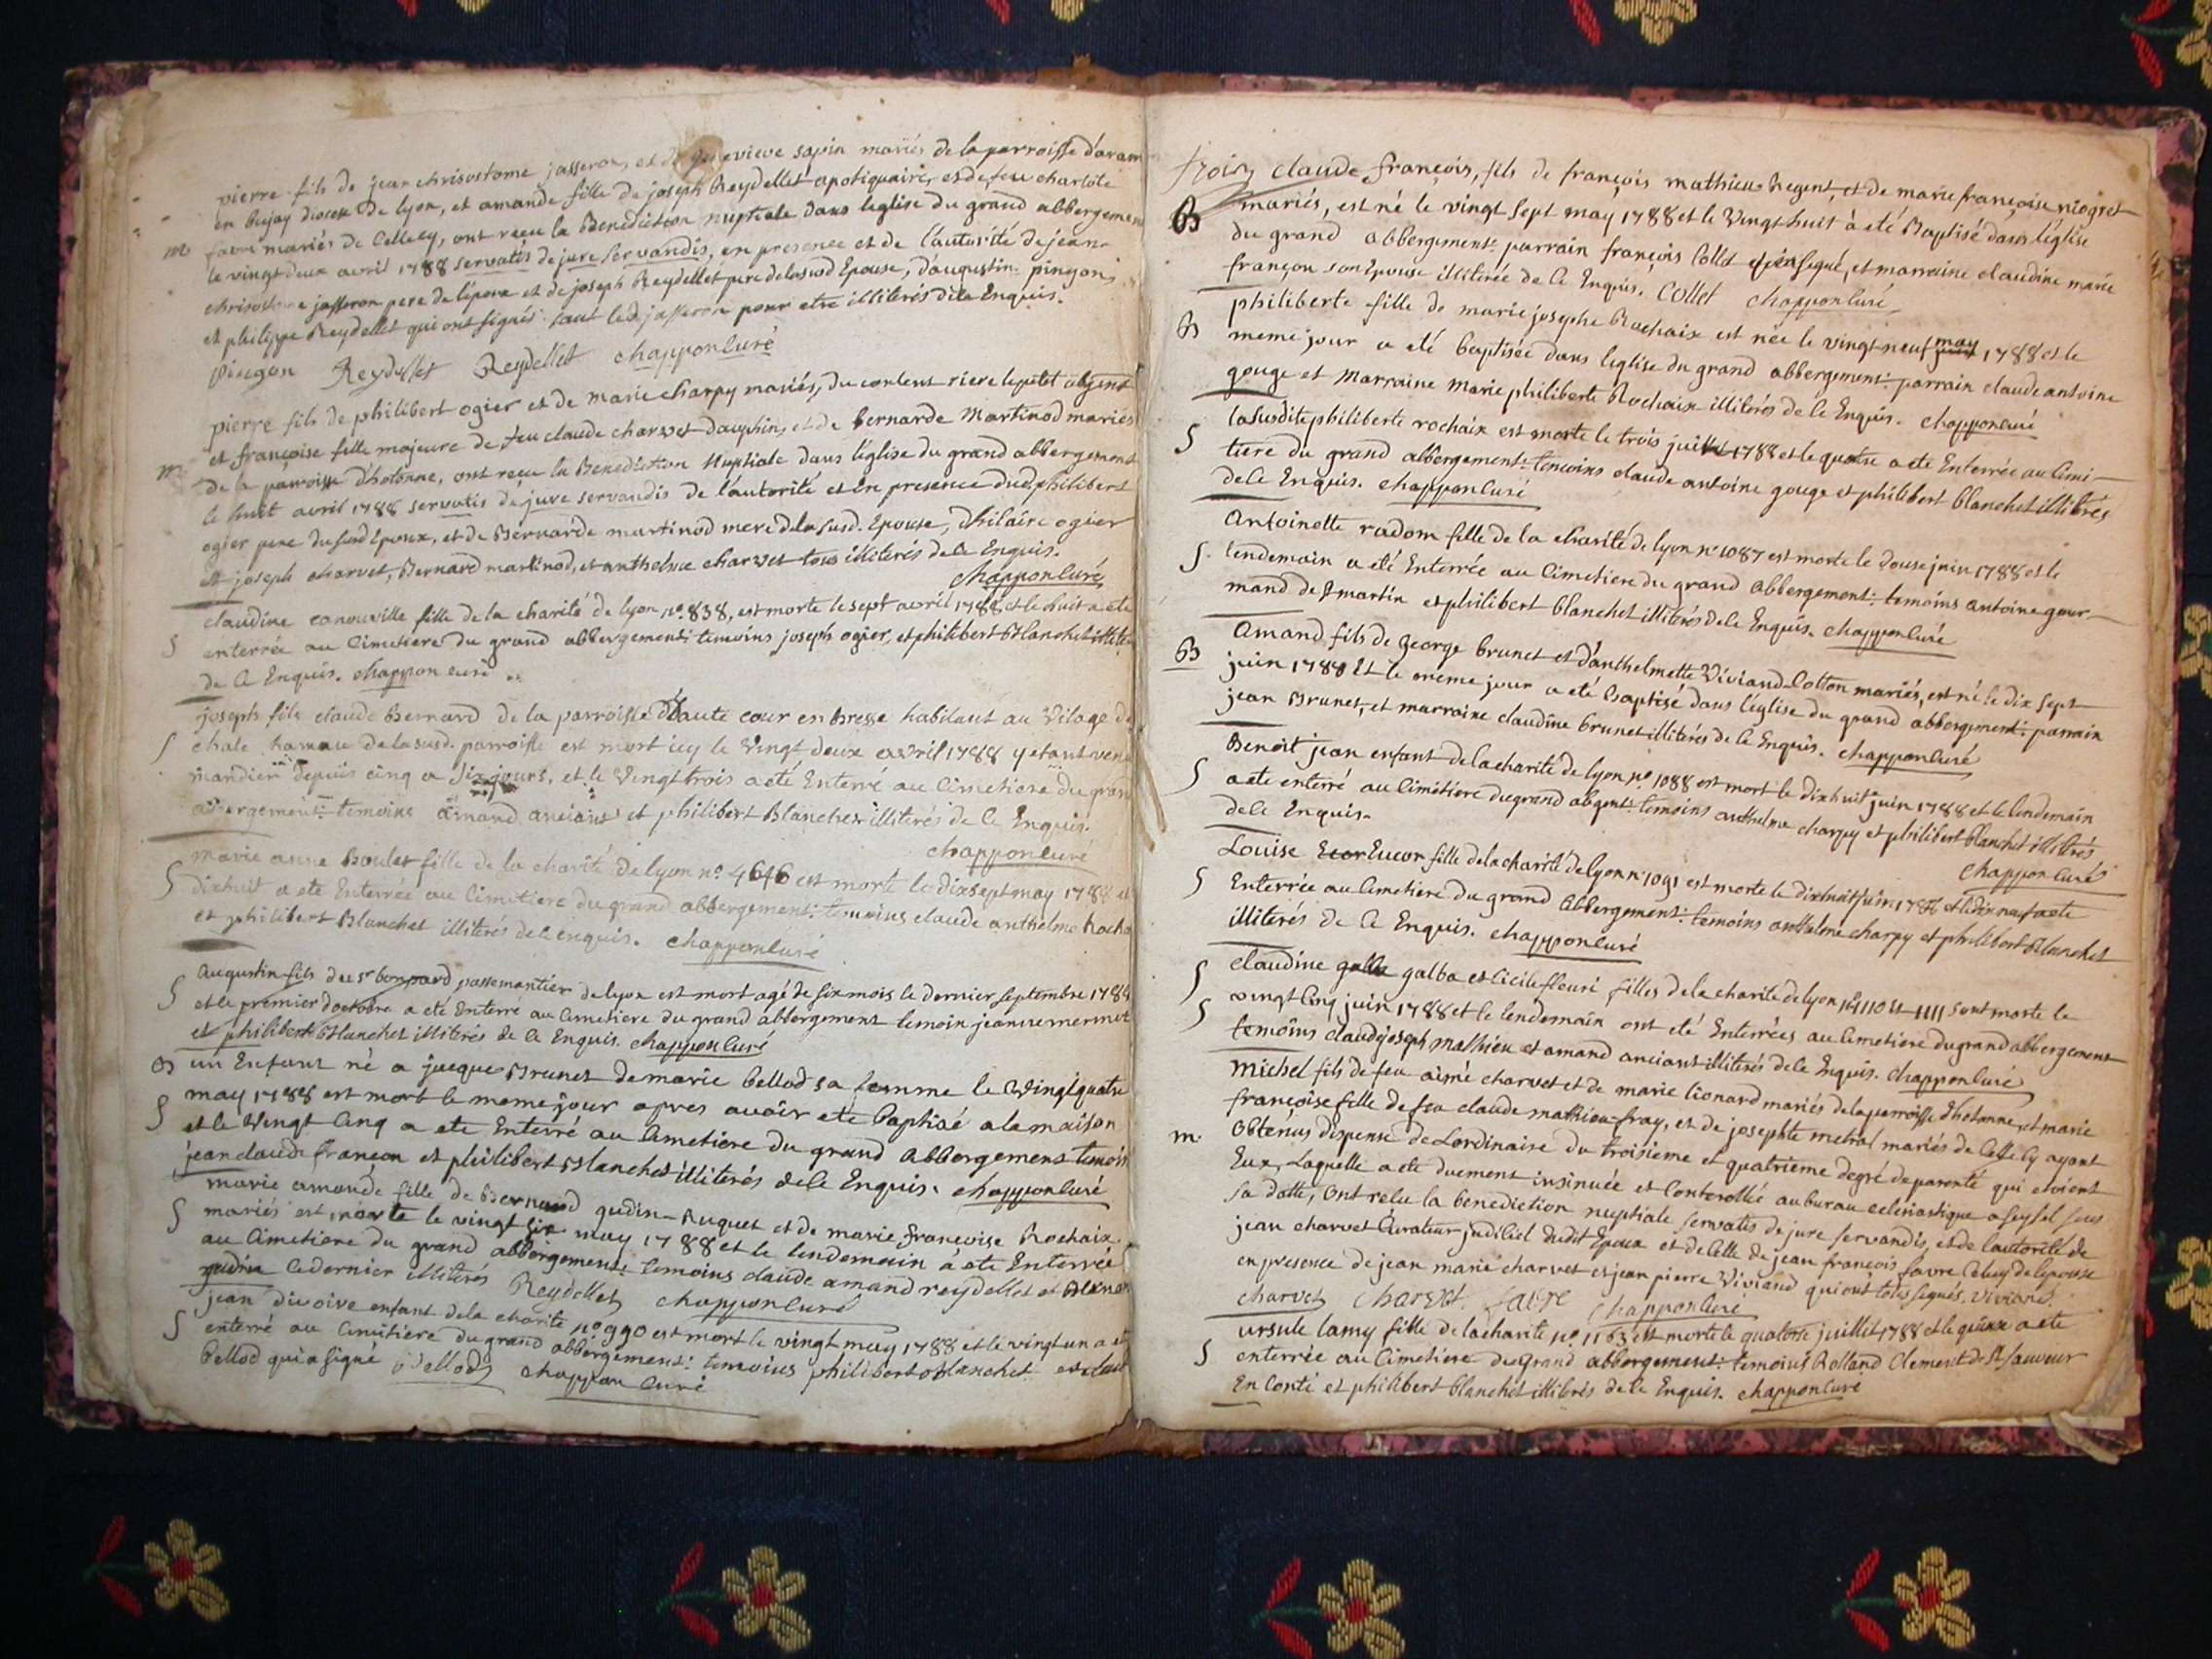 pierre fils de jean chrisostome jasseron, et de genevieve sapin mariés de la parroisse d'aram
en Bujay diocese de lyon, et amande fille de joseph Reydellet apotiquaire, et de feu charlote
m favre mariés de Cellecy, ont recu la Benediction nuptiale dans leglise du grand abbergement
le vingt deux avril 1788 servatis de jure servandis, en presence et de l'autorité de jean
chrisostome jasseron pere de lepoux et de joseph Reydellet pere de lasusd Epouse, d'augustin pinçon
et philippe Reydellet qui ont signés sauf led. jasseron pour etre illiterés de le Enquis.
pinçon Reydellet Reydellet chapponcuré
pierre fils de philibert ogier et de marie charpy mariés, du contens riere le petit abgent
m et françoise fille majeure de feu claude charvet dauphin, et de Bernarde Martinod mariés
de la parroisse d'hotonne, ont recu la Benediction Nuptiale dans l'église du grand abbergement
le huit avril 1788 servatis de jure servandis de l'autorité et en presence dud. philibert
ogier pere du susd Epoux, et de Bernarde martinod mere de la susd. Epouse, d'hilaire ogier
et joseph charvet, Bernard martinod, et anthelme charvet tous illiterés de le Enquis.
chapponcuré
claudine canouville fille de la charité de lyon no. 838, est morte le sept avril 1788 et le huit a eté
S enterrée au Cimetiere du grand abbergement: temoins joseph ogier, et philibert Blanchet illiterés
de le Enquis. chappon curé
joseph fils claude Bernard de la parroisse d'haute cour en Bresse habitant au Vilage de
S chale hamau de lasusd. parroisse est mort icy le Vingt deux avril 1788 y etant venu
mandier depuis cinq a six jours, et le Vingt trois a eté Enterré au Cimetiere du grand
abbergement: temoins amand anciant et philibert Blanchet illiterés de le Enquis.
chapponcuré
marie anne Boulet fille de la charité de lyon no. 4646 est morte le dixsept may 1788 et
S dixhuit a eté Enterrée au Cimetiere du grand abbergement: temoins claude anthelme Rocha
et philibert Blanchet illiterés de le enquis. chapponcuré
S augustin fils du sr bonnard passemantier de lyon est mort agé de six mois le dernier septembre 1788
et le premier doctobre a eté Enterré au Cimetiere du grand abbergement temoin jean
et philibert Blanchet illiterés de le Enquis. chapponcuré
B un Enfant né a jacque Brunet de marie bellod sa femme le Vingt quatre
S may 1788 est mort le meme jour apres avoir eté baptisé a la maison
et le Vingt Cinq a eté Enterré au Cimetiere du grand abbergement temoin
jean claude françon et philibert Blanchet illiterés de le Enquis. chapponcuré
marie amande fille de Bernard gudin-huguet et de marie françoise Rochaix
S mariés est morte le vingt six may 1788 et le lendemain à eté Enterrée
au Cimetiere du grand abbergement: temoins claude amand reydellet et Bernar
gudin le dernier illiterés Reydellet chapponcuré
jean divoire enfant de la charité no 990 est mort le vingt may 1788 et le vingt un a eté
S enterré au Cimetiere du grand abbergement: temoins philibert Blanchet et
bellod qui a signé Bellod chappon curé
trois claude françois, fils de françois mathieu Regent, et de marie françoise niogret
B mariés, est né le vingt sept may 1788 et le Vingt huit à eté Baptisé dans l'église
du grand abbergement: parrain françois Collet qui a signé, et marraine claudine marie
françon son Epouse illiterée de le Enquis. Collet chapponcuré
philiberte fille de marie josephe Rochaix est née le vingt neuf may 1788 et le
B meme jour a eté baptisée dans leglise du grand abbergement: parrain claude antoine
gouge et Marraine Marie philiberte Rochaix illiterés de le Enquis. chapponcuré
la susdite philiberte rochaix est morte le trois juillet 1788 et le quatre a eté Enterrée au Cimi-
S tiere du grand abbergement: temoins claude antoine gouge et philibert blanchet illiterés
de le Enquis. chapponcuré
Antoinette radom fille de la charité de lyon no 1087 est morte le douze juin 1788 et le
S. lendemain a eté Enterrée au Cimetiere du grand abbergement: temoins antoine gour-
mand de st martin et philibert blanchet illiterés de le Enquis. chapponcuré
Amand fils de george brunet et d'anthelmette Viviand-Cotton mariés, est né le dix sept
B juin 1788 Et le meme jour a eté baptisé dans l'église du grand abbergement: parrain
jean Brunet, et marraine claudine brunet illiterés de le Enquis. chapponcuré
Benoit jean enfant de la charité de lyon no. 1088 est mort le dixhuit juin 1788 et le lendemain
S a eté enterré au Cimetiere du grand abgent: temoins anthelme charpy et philibert blanchet illiterés
de le Enquis. chapponcuré
Louise Ecor Eucor fille de la charité de lyon no 1091 est morte le dixhuit juin 1788 et le dix neuf a eté
S Enterrée au Cimetiere du grand abbergement: temoins anthelme charpy et philibert Blanchet
illiterés de le Enquis. chapponcuré
S claudine galla galba et Cicile fleuri filles de la charité de lyon no 1110 et 1111 sont morte le
S vingt Cinq juin 1788 et le lendemain ont eté Enterrées au Cimetiere du grand abbergement
temoins claude joseph mathieu et amand anciant illiterés de le Enquis. chapponcuré
Michel fils de feu aimé charvet et de marie lionard mariés de la parroisse d'hotonne, et marie
françoise fille de feu claude mathieu-fray, et de josephte metral mariés de Cellecy ayant
m. Obtenus dispense de Lordinaire du troisieme et quatrieme degré de parenté qui etoient
Eux, Laquelle a eté duement insinuée et Conterollée au burau eclesiastique a seysel sous
sa datte, Ont relu la benediction nuptiale servatis de jure servandis, et de l'autorité de
jean charvet Curateur judiciel dudit Epoux et de Celle de jean francois favre Celuy de lepouse
en presence de jean marie charvet et jean pierre Viviand qui ont tous signés. viviand.
charvet Charvet. favre chapponcuré
ursule lamy fille de la charité no. 1163 est morte le quatorse juillet 1788 et le quinze a eté
S enterrée au Cimetiere du Grand abbergement: temoins Rolland Clement de st sauveur
En Conté et philibert blanchet illiterés de le Enquis. chapponcuré